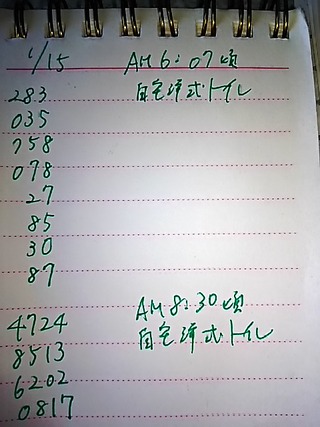 1/15 AM 6:07頃
283 自宅洋式トイレ
035
758
078
27
85
30
87
AM 8:30頃
4724 自宅洋式トイレ
8513
6202
0817